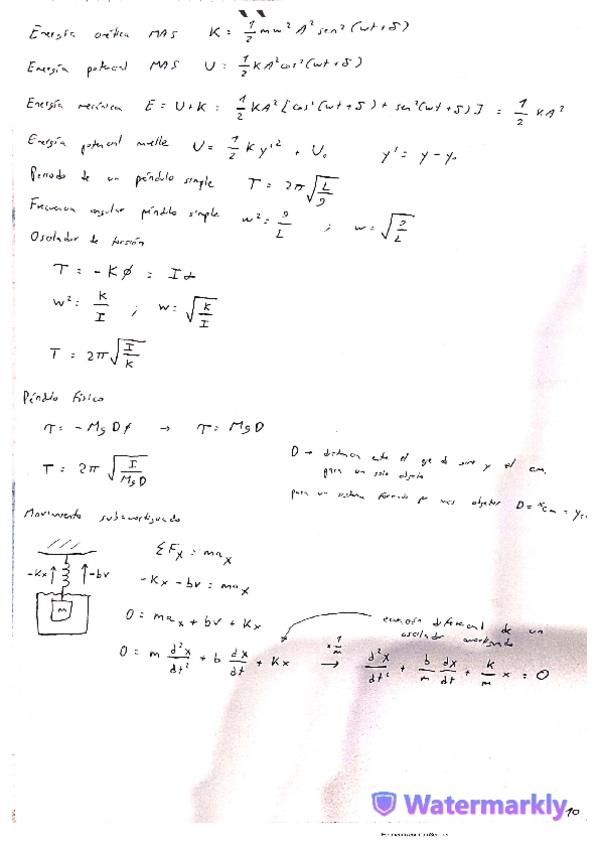 Energía cinética MAS K = 1/2 mw² A² sen² (wt + δ)
Energía potencial MAS U = 1/2 KA² cos² (wt + δ)
Energía mecánica E = U + K = 1/2 KA² [cos² (wt + δ) + sen² (wt + δ)] = 1/2 KA²
Energía potencial muelle U = 1/2 K y'² + U₀ y' = y - y₀
Periodo de un péndulo simple T = 2π√(L/g)
Frecuencia angular péndulo simple w² = g/L ; w = √(g/L)
Oscilador de torsión
τ = -Kφ = Iα
w² = K/I ; w = √(K/I)
T = 2π√(I/K)
Péndulo físico
τ = -MgDφ → τ = MgD
D → distancia entre el eje de giro y el cm.
para un solo objeto
T = 2π√(I/MgD)
para un sistema formado por más objetos D = xcm = y
Movimiento subamortiguado
ΣFx = max
-Kx -bv
-Kx - bv = max
m
0 = max + bv + Kx
ecuación diferencial de un
oscilador amortiguado
0 = m d²x/dt² + b dx/dt + Kx x 1/m → d²x/dt² + b/m dx/dt + K/m x = 0
Watermarkly
10